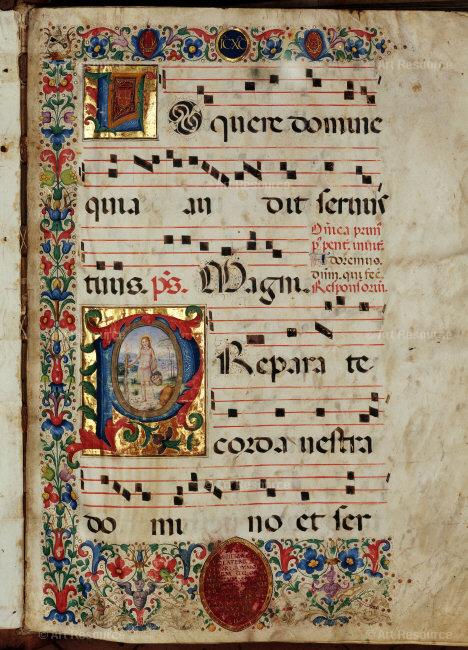 ICXC
LOquere domine
quia au dit seruus
tuus. ps. Magni.
Dñica prim
p° pent. inuit.
Adoremus
dñm. qui fec.
Responsorium.
PRepara te
corda uestra
do mi no et ser
© Art Resource